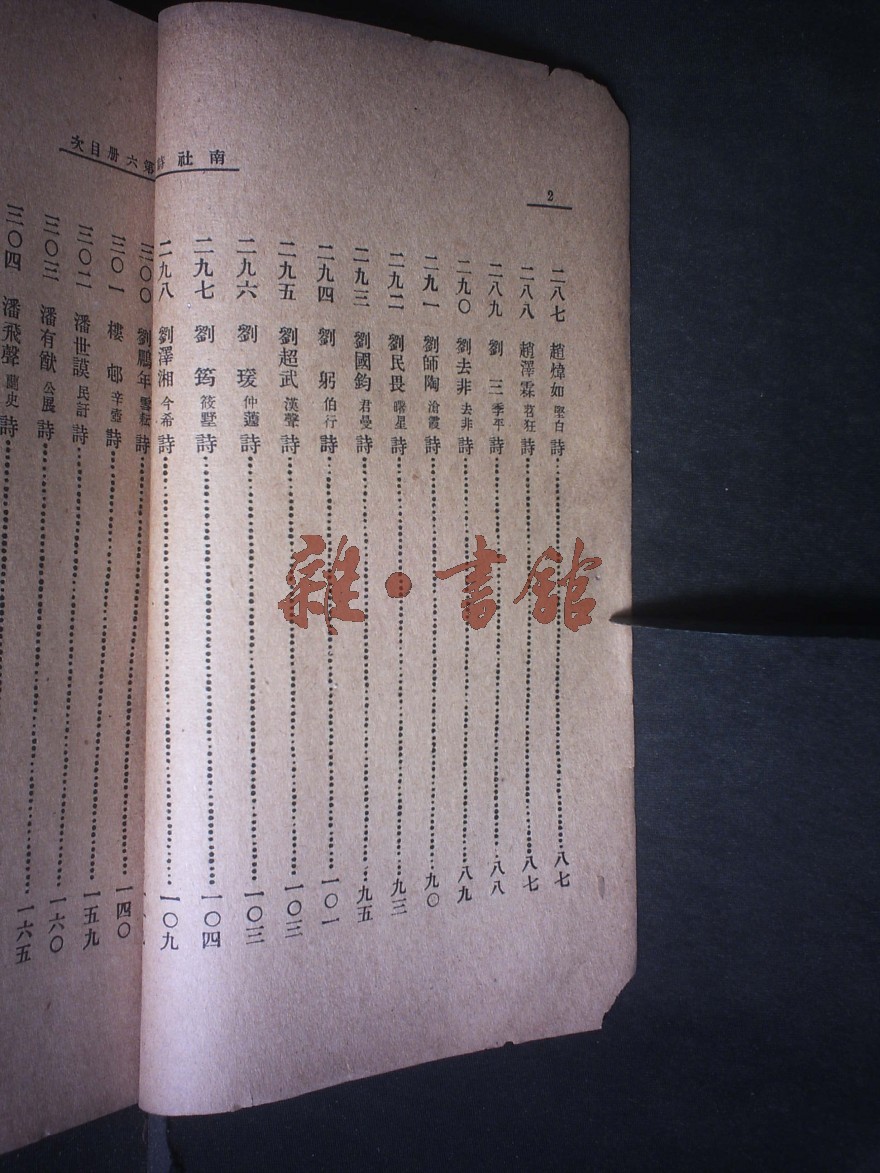 南社 第六册目次
2
二八七 趙煒如 堅白 詩 八七
二八八 趙澤霖 苕狂 詩 八七
二八九 劉三 季平 詩 八八
二九〇 劉去非 去非 詩 八九
二九一 劉師陶 滄霞 詩 九〇
二九二 劉民畏 曙星 詩 九三
二九三 劉國鈞 君曼 詩 九五
二九四 劉躬 伯行 詩 一〇一
二九五 劉超武 漢聲 詩 一〇三
二九六 劉瑗 仲蘧 詩 一〇三
二九七 劉筠 筱墅 詩 一〇四
二九八 劉澤湘 今希 詩 一〇九
三〇〇 劉鵬年 雪耘 詩
三〇一 樓邨 辛壺 詩 一四〇
三〇二 潘世謨 民訂 詩 一五九
三〇三 潘有猷 公展 詩 一六〇
三〇四 潘飛聲 蘭史 詩 一六五
雜·書館